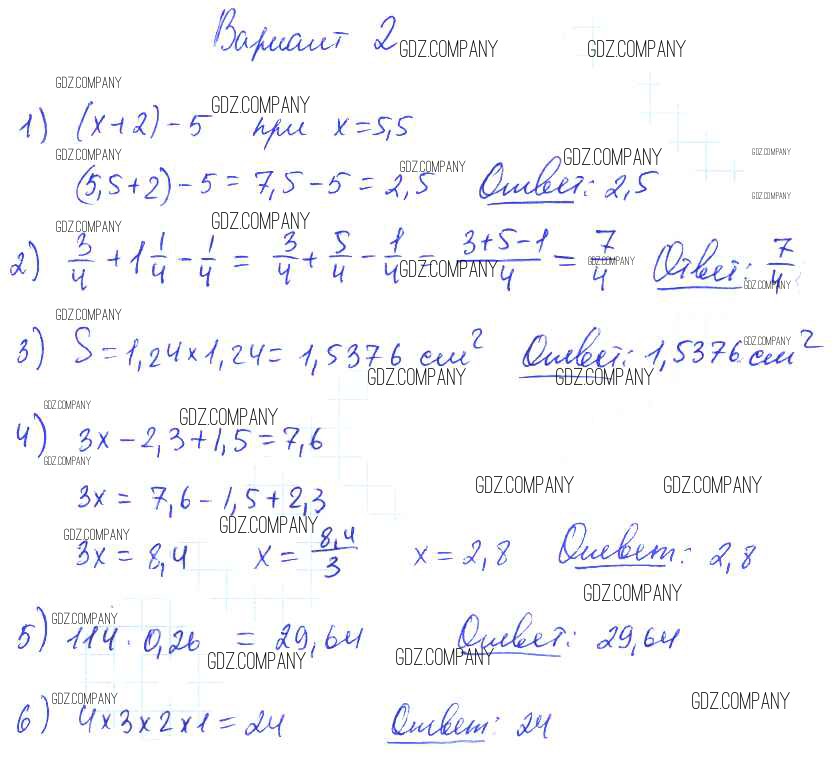 Вариант 2 GDZ.COMPANY GDZ.COMPANY
GDZ.COMPANY GDZ.COMPANY
1) (x+2)-5 при x=5,5
GDZ.COMPANY GDZ.COMPANY GDZ.COMPANY GDZ.COMPANY
(5,5+2)-5=7,5-5=2,5 Ответ: 2,5 GDZ.COMPANY
GDZ.COMPANY GDZ.COMPANY
2) 3/4 + 1 1/4 - 1/4 = 3/4 + 5/4 - 1/4 = (3+5-1)/4 = 7/4 Ответ: 7/4
GDZ.COMPANY GDZ.COMPANY GDZ.COMPANY
GDZ.COMPANY GDZ.COMPANY
3) S=1,24×1,24=1,5376 см² Ответ: 1,5376 см²
GDZ.COMPANY GDZ.COMPANY
GDZ.COMPANY GDZ.COMPANY
4) 3x-2,3+1,5=7,6
GDZ.COMPANY GDZ.COMPANY GDZ.COMPANY
3x=7,6-1,5+2,3
GDZ.COMPANY GDZ.COMPANY
3x=8,4 x=8,4/3 x=2,8 Ответ: 2,8
GDZ.COMPANY
GDZ.COMPANY
5) 114·0,26 = 29,64 Ответ: 29,64
GDZ.COMPANY GDZ.COMPANY
GDZ.COMPANY GDZ.COMPANY
6) 4×3×2×1=24 Ответ: 24